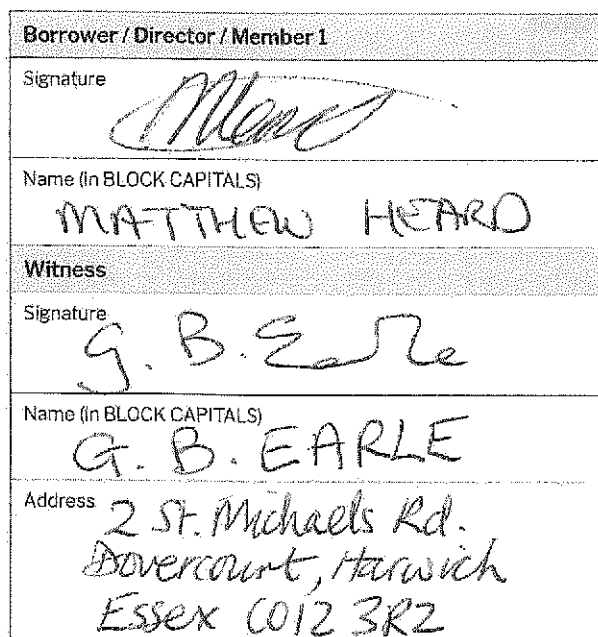 Borrower / Director / Member 1
Signature
Name (in BLOCK CAPITALS)
MATTHEW HEARD
Witness
Signature
G. B. Earle
Name (in BLOCK CAPITALS)
G. B. EARLE
Address 2 St. Michaels Rd.
Dovercourt, Harwich
Essex CO12 3RZ